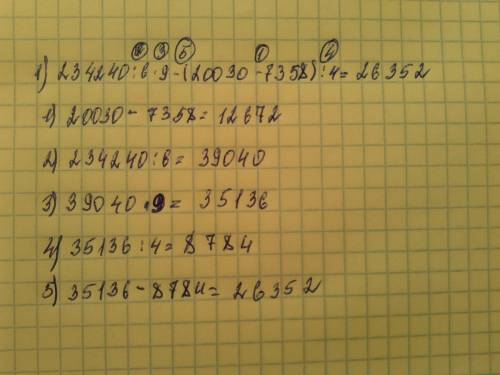 ② ③ ⑤ ① ④
1) 234240:6·9-(20030-7358):4=26352
1) 20030-7358=12672
2) 234240:6=39040
3) 39040·9=35136
4) 35136:4=8784
5) 35136-8784=26352